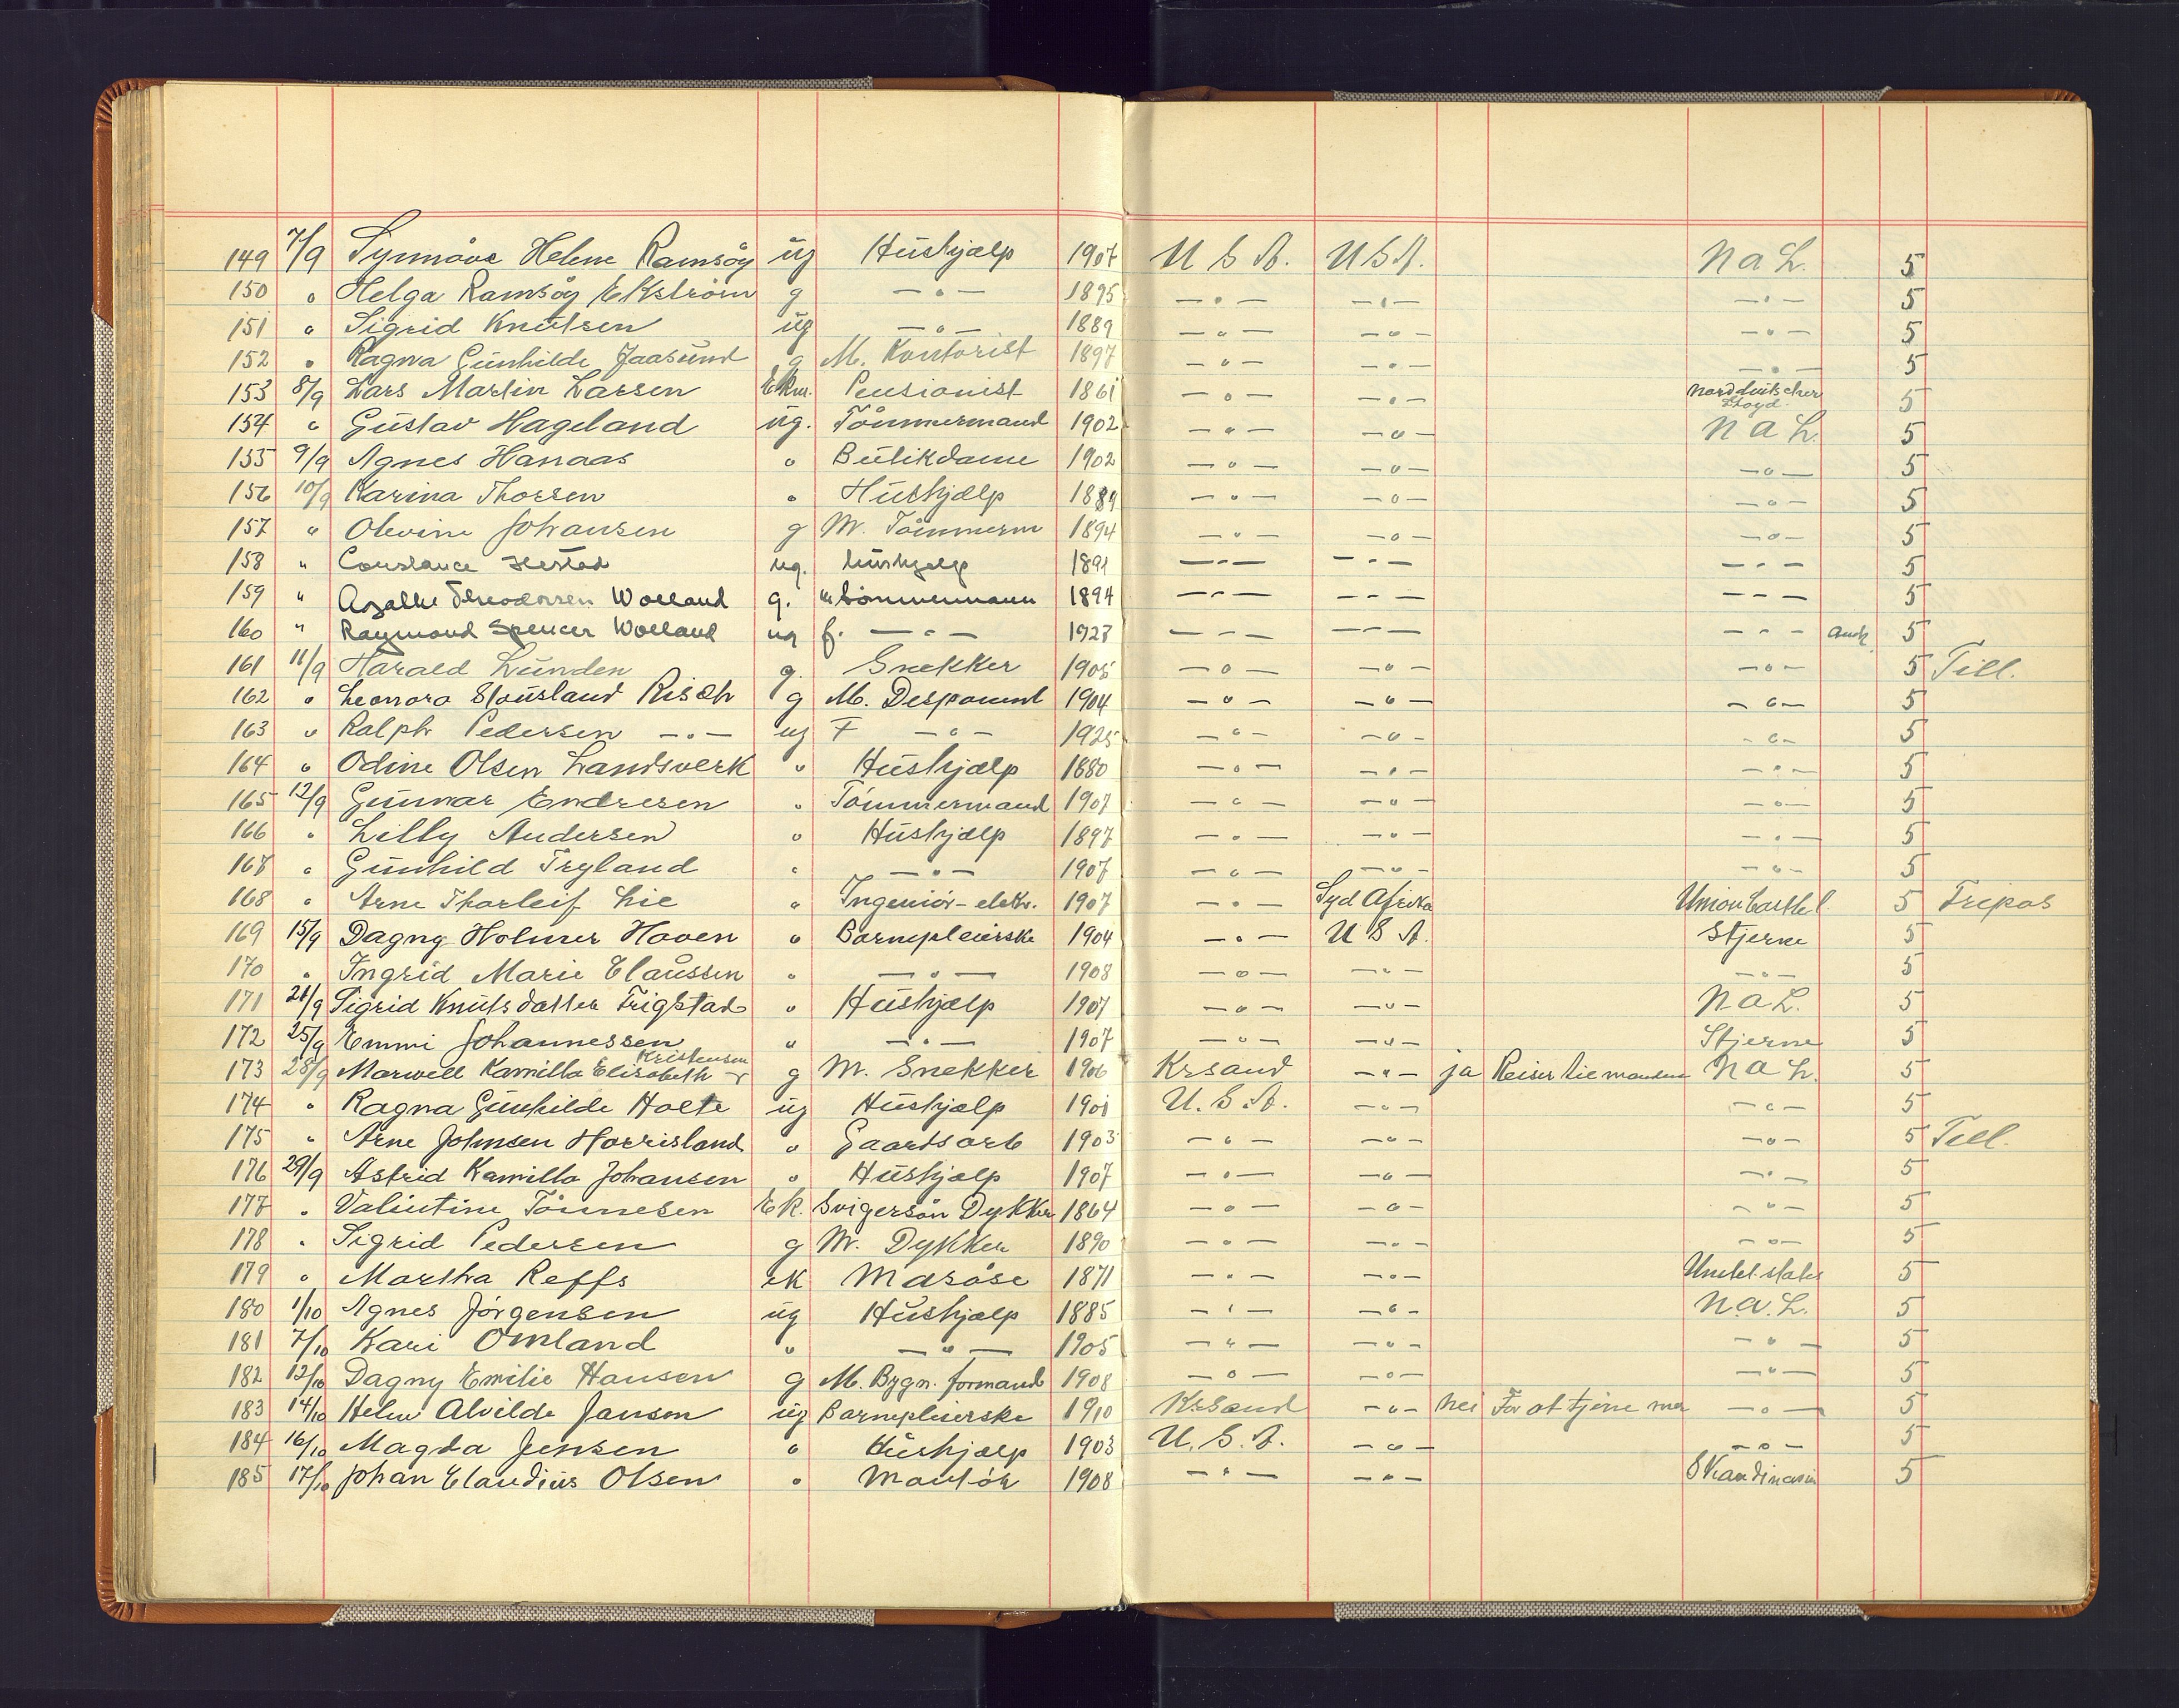 149 7/9 Synnöve Helene Ramsöy ug Hushjælp 1907 U S A. U S A. N a L. 5
150 " Helga Ramsöy Ekström g —"— 1895 —"— —"— —"— 5
151 " Sigrid Knutsen ug —"— 1889 —"— —"— —"— 5
152 " Ragna Gunhilde Jaasund g M. Kontorist 1897 —"— —"— —"— 5
153 8/9 Lars Martin Larsen Ekm. Pensionist 1861 —"— —"— Norddeutscher Lloyd 5
154 " Gustav Hageland ug. Tömmermand 1902 —"— —"— N a L. 5
155 9/9 Agnes Hanaas " Butikdame 1902 —"— —"— —"— 5
156 10/9 Karina Thorsen " Hushjælp 1889 —"— —"— —"— 5
157 " Olevine Johansen g M. Tömmerm 1894 —"— —"— —"— 5
158 " Constance ug. hushjelp 1891 —"— —"— —"— 5
159 " Agathe Theodorsen Wolland g. m. tömmermann 1894 —"— —"— —"— 5
160 " Raymond Spencer Wolland ug f. —"— 1927 —"— —"— —"— 5
161 11/9 Harald Lunden g. Snekker 1905 —"— —"— —"— 5 Till.
162 " Leonora Stousland Risch g M. Desponent 1904 —"— —"— —"— 5
163 " Ralph Pedersen —"— ug F —"— 1925 —"— —"— —"— 5
164 " Odine Olsen Landsverk " Hushjælp 1880 —"— —"— —"— 5
165 12/9 Gunnar Endresen " Tömmermand 1907 —"— —"— —"— 5
166 " Lilly Andersen " Hushjælp 1897 —"— —"— —"— 5
167 " Gunhild Tryland " —"— 1907 —"— —"— —"— 5
168 " Arne Thorleif Lie " Ingeniör-elektr. 1907 —"— Syd Afrika Union Carthel 5 Tripos
169 15/9 Dagny Holmer Hoven " Barnepleierske 1904 —"— U S A. Stjerne 5
170 " Ingrid Marie Claussen " —"— 1908 —"— —"— —"— 5
171 21/9 Sigrid Knutsdatter Trigstad " Hushjælp 1907 —"— —"— N a L. 5
172 25/9 Emmi Johannessen " —"— 1907 —"— —"— Stjerne 5
173 28/9 Marwell Kamilla Elisabeth Kristensen g M. Snekker 1906 Krsand —"— ja Reiser til manden N a L. 5
174 " Ragna Gunhilde Holte ug Hushjælp 1901 U. S. A. —"— —"— 5
175 " Arne Johnsen Horrisland " Gaardsarb 1903 —"— —"— —"— 5 Till.
176 29/9 Astrid Kamilla Johansen " Hushjælp 1907 —"— —"— —"— 5
177 " Valentine Tönnesen Ek. Svigersön Dykker 1864 —"— —"— —"— 5
178 " Sigrid Pedersen g M. Dykker 1890 —"— —"— —"— 5
179 " Martha Reffs ek Masöse 1871 —"— —"— United states 5
180 1/10 Agnes Jörgensen ug Hushjælp 1885 —"— —"— N a. L. 5
181 7/10 Kari Omland " —"— 1905 —"— —"— —"— 5
182 12/10 Dagny Emilie Hansen g M. Bygn. formand 1908 —"— —"— —"— 5
183 14/10 Helen Alvilde Janson ug Barnepleierske 1910 Krsand —"— nei For at tjene mer —"— 5
184 16/10 Magda Jensen " Hushjælp 1903 U. S. A. —"— —"— 5
185 17/10 Johan Claudius Olsen " Montör 1908 —"— —"— Skandinavien 5